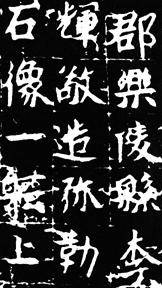 郡樂陵縣李
輝敬造弥勒
石像一軀上